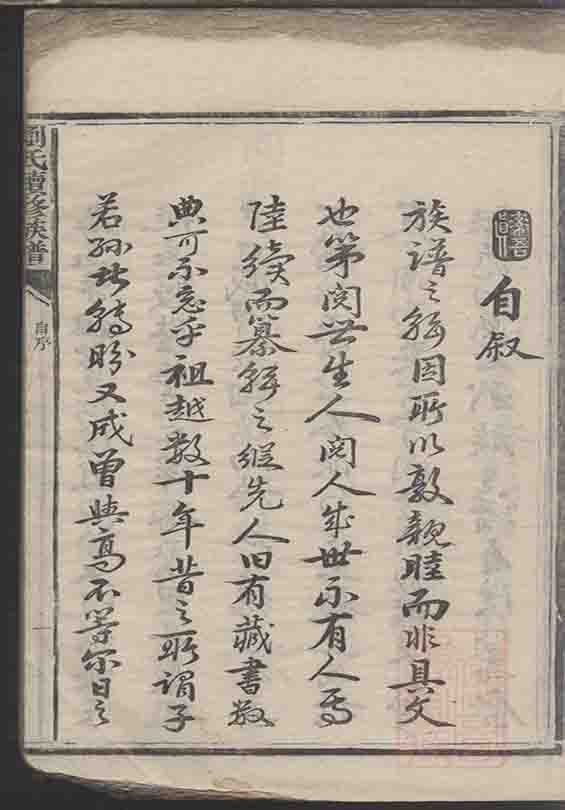 自叙
族譜之緝因所以敦親睦而非具文
也第閱世生人閱人成世不有人焉
陸續而纂緝之縱先人旧有藏書数
典可不忘乎祖越数十年昔之所謂子
若孫皆轉盼又成曾與高不等尔日之
劉氏續修族譜
自序